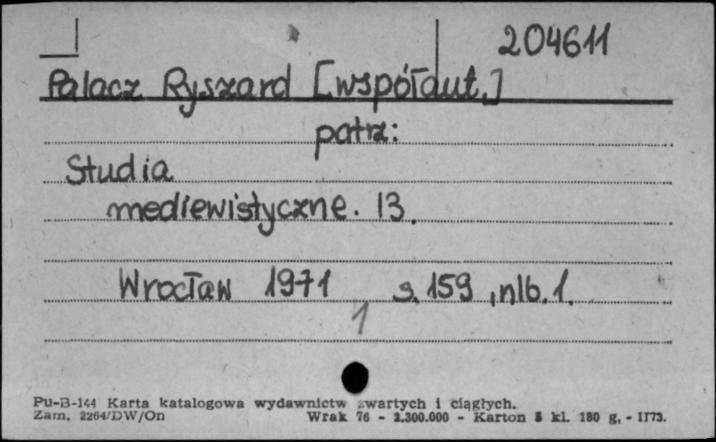 204611
Palacz Ryszard [współaut.]
patrz:
Studia
mediewistyczne. 13.
Wrocław 1971 s. 159, nlb. 1.
1
Pu-B-144 Karta katalogowa wydawnictw zwartych i ciągłych.
Zam. 2264/DW/On Wrak 76 - 2.300.000 - Karton kl. 180 g. - II73.